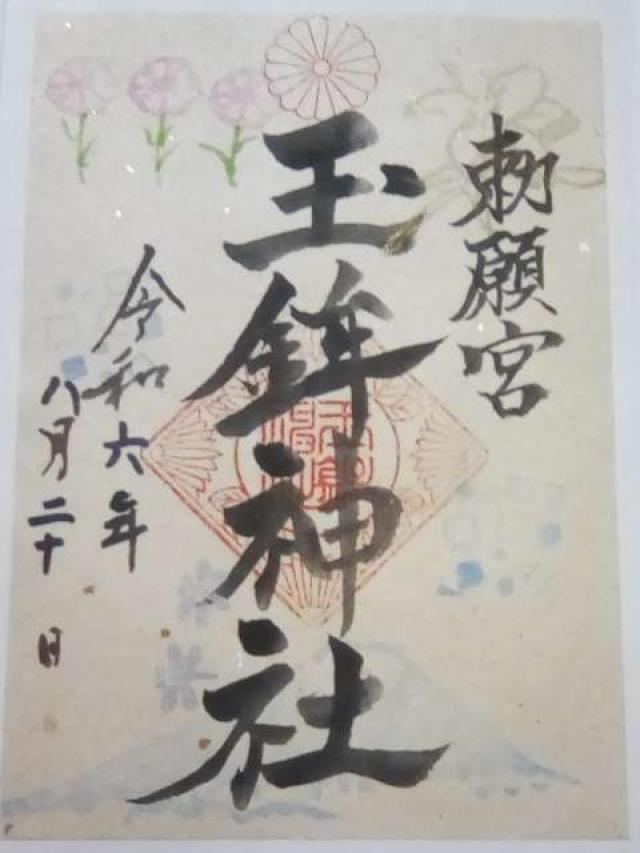 勅願宮
玉鉾神社
令和六年
八月二十日